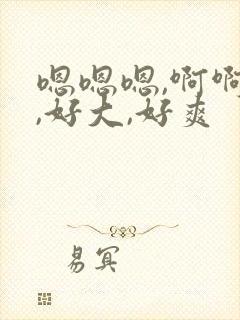 嗯嗯嗯,啊啊
,好大,好爽
易冥